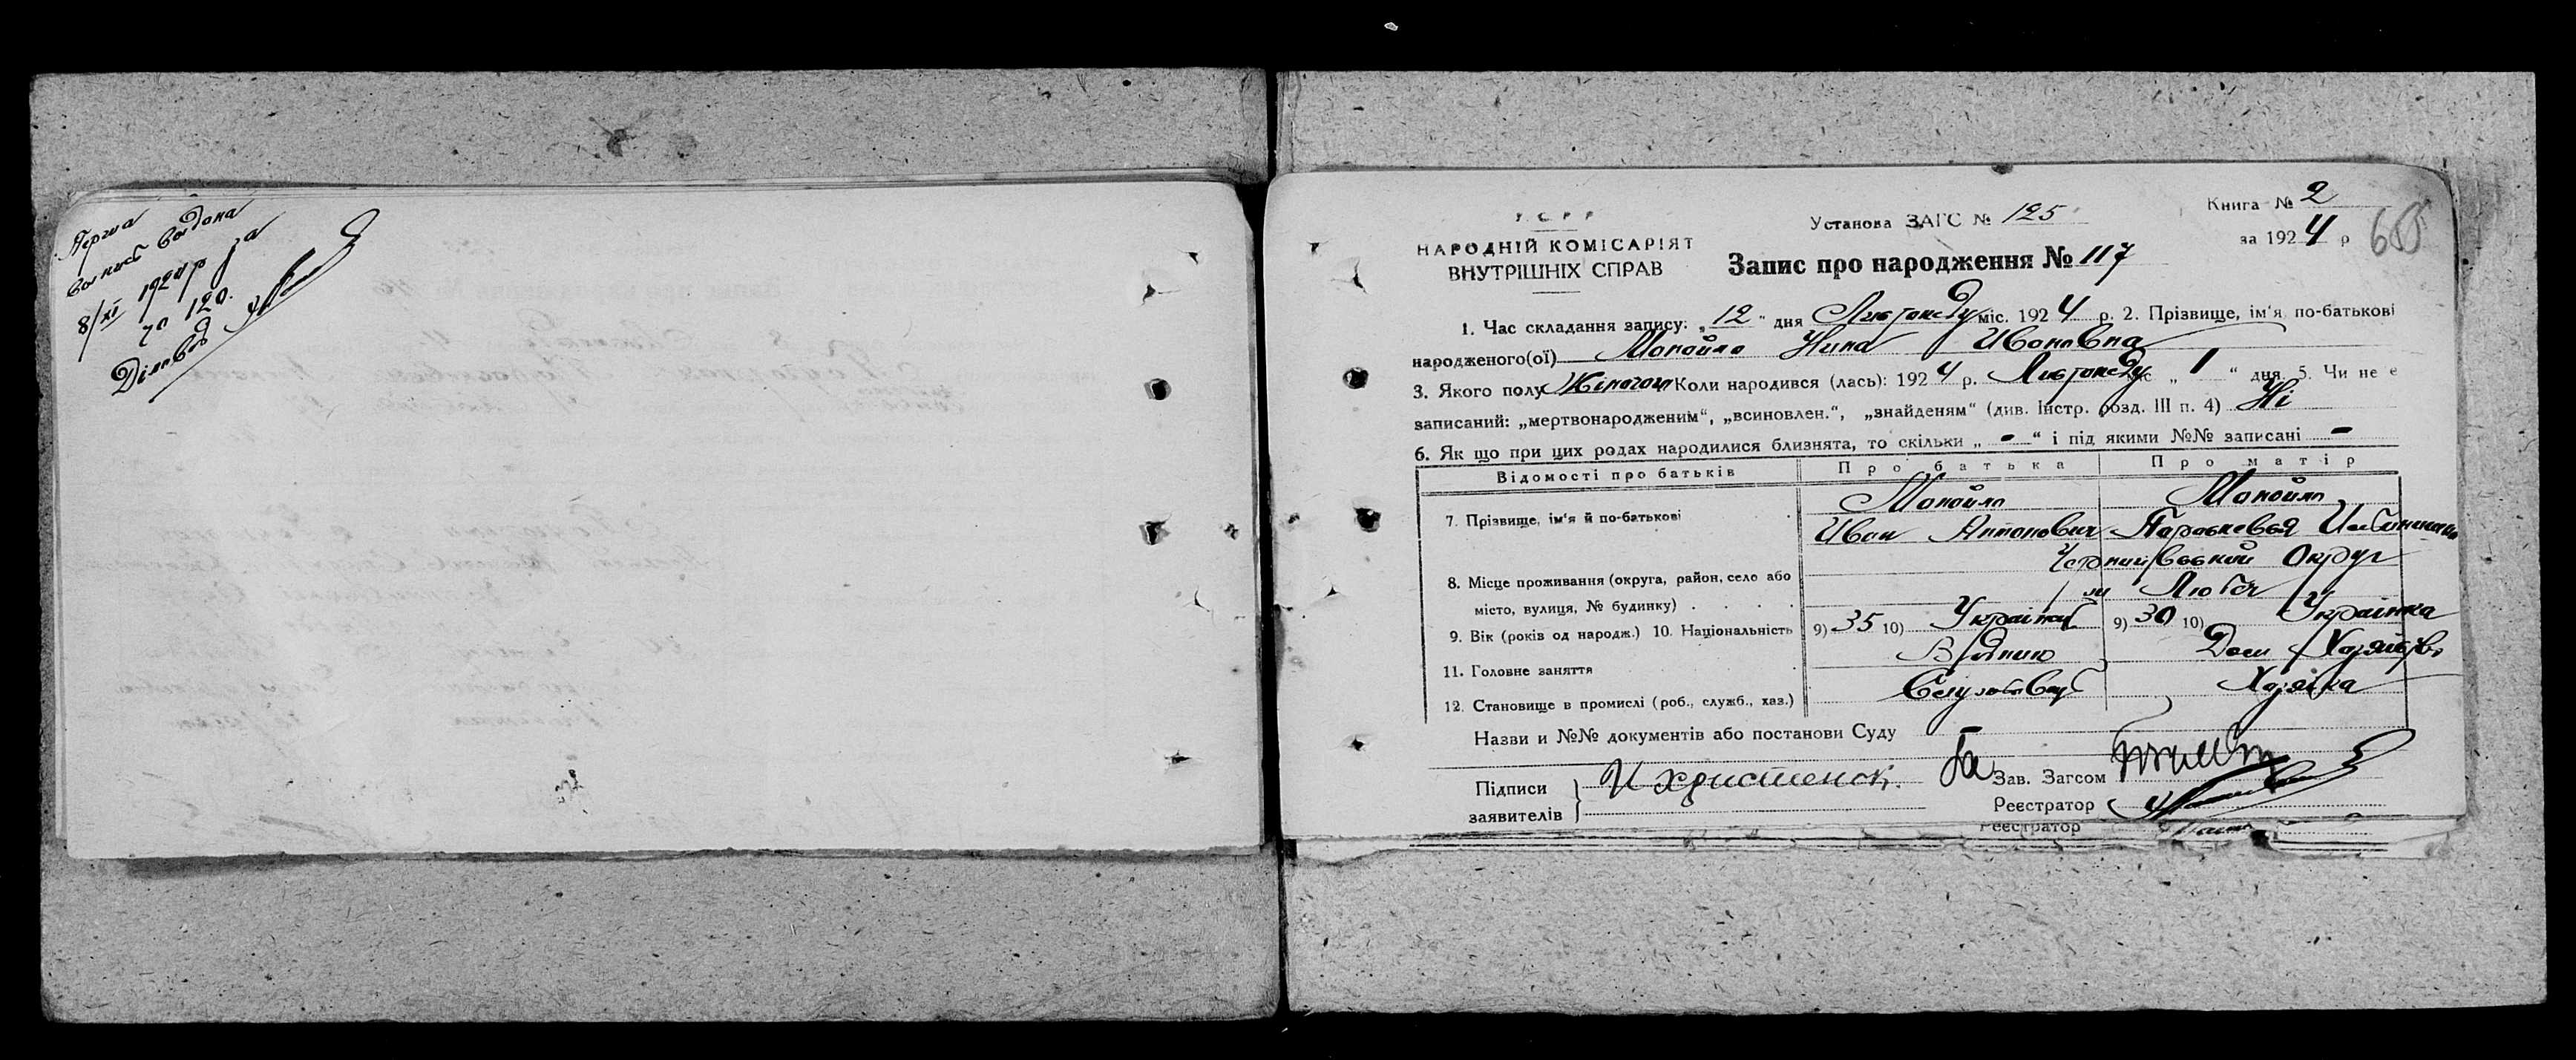 Перша
8/XI 1924 р за
за 120.
Діловод
У С Р Р
НАРОДНІЙ КОМІСАРІЯТ
ВНУТРІШНІХ СПРАВ
Установа ЗАГС № 125
Книга № 2
за 1924 р
Запис про народження № 117
1. Час складання запису: „12“ дня Листопаду міс. 1924 р. 2. Прізвище, ім'я по-батькові
народженого(ої) Манойло Нина Ивановна
3. Якого полу Жіночого Коли народився (лась): 1924 р. Листопаду міс „1“ дня. 5. Чи не є
записаний: „мертвонародженим“, „всиновлен.“, „знайденям“ (див. Інстр. розд. III п. 4) Ні
6. Як що при цих родах народилися близнята, то скільки „-“ і під якими №№ записані -
Відомості про батьків Про батька Про матір
7. Прізвище, ім'я й по-батькові Манойло Манойло
Иван Антонович Парасковья
8. Місце проживання (округа, район, село або Чернигівський Округ
місто, вулиця, № будинку) . . . . м Любеч
9. Вік (років од народж.) 10. Національність 9) 35 10) Українец 9) 30 10) Українка
11. Головне заняття Дом Хозяйство
12. Становище в промислі (роб., служб., хаз.) Хозяйка
Назви и №№ документів або постанови Суду
Підписи
заявителів
И Христенок.
За Зав. Загсом
Реєстратор
Реєстратор